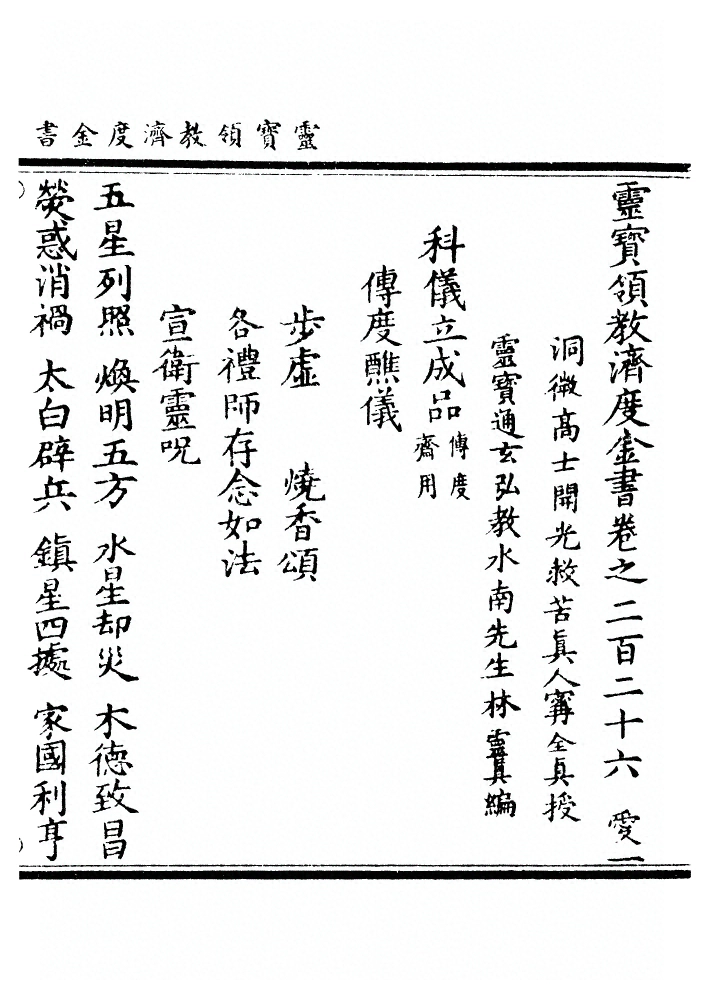 靈寶領教濟度金書
靈寶領教濟度金書卷之二百二十六 愛一
洞微高士開光救苦眞人寗全真授
靈寶通玄弘教水南先生林靈真編
科儀立成品 傳度齋用
傳度醮儀
步虛 燒香頌
各禮師存念如法
宣衛靈呪
五星列照 煥明五方 水星却災 木德致昌
熒惑消禍 太白辟兵 鎭星四據 家國利亨